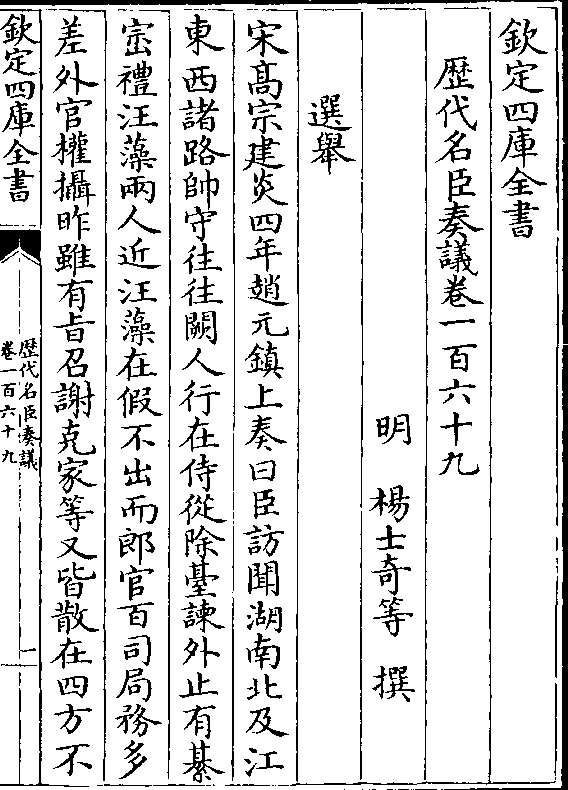 欽定四庫全書
歴代名臣奏議卷一百六十九
明 楊士奇等 撰
選舉
宋髙宗建炎四年趙元鎮上奏曰臣訪聞湖南北及江
東西諸路帥守往往闕人行在侍從除臺諫外止有綦
崈禮汪藻兩人近汪藻在假不出而郎官百司局務多
差外官權攝昨雖有旨召謝克家等又皆散在四方不
欽定四庫全書
歴代名臣奏議
卷一百六十九
一